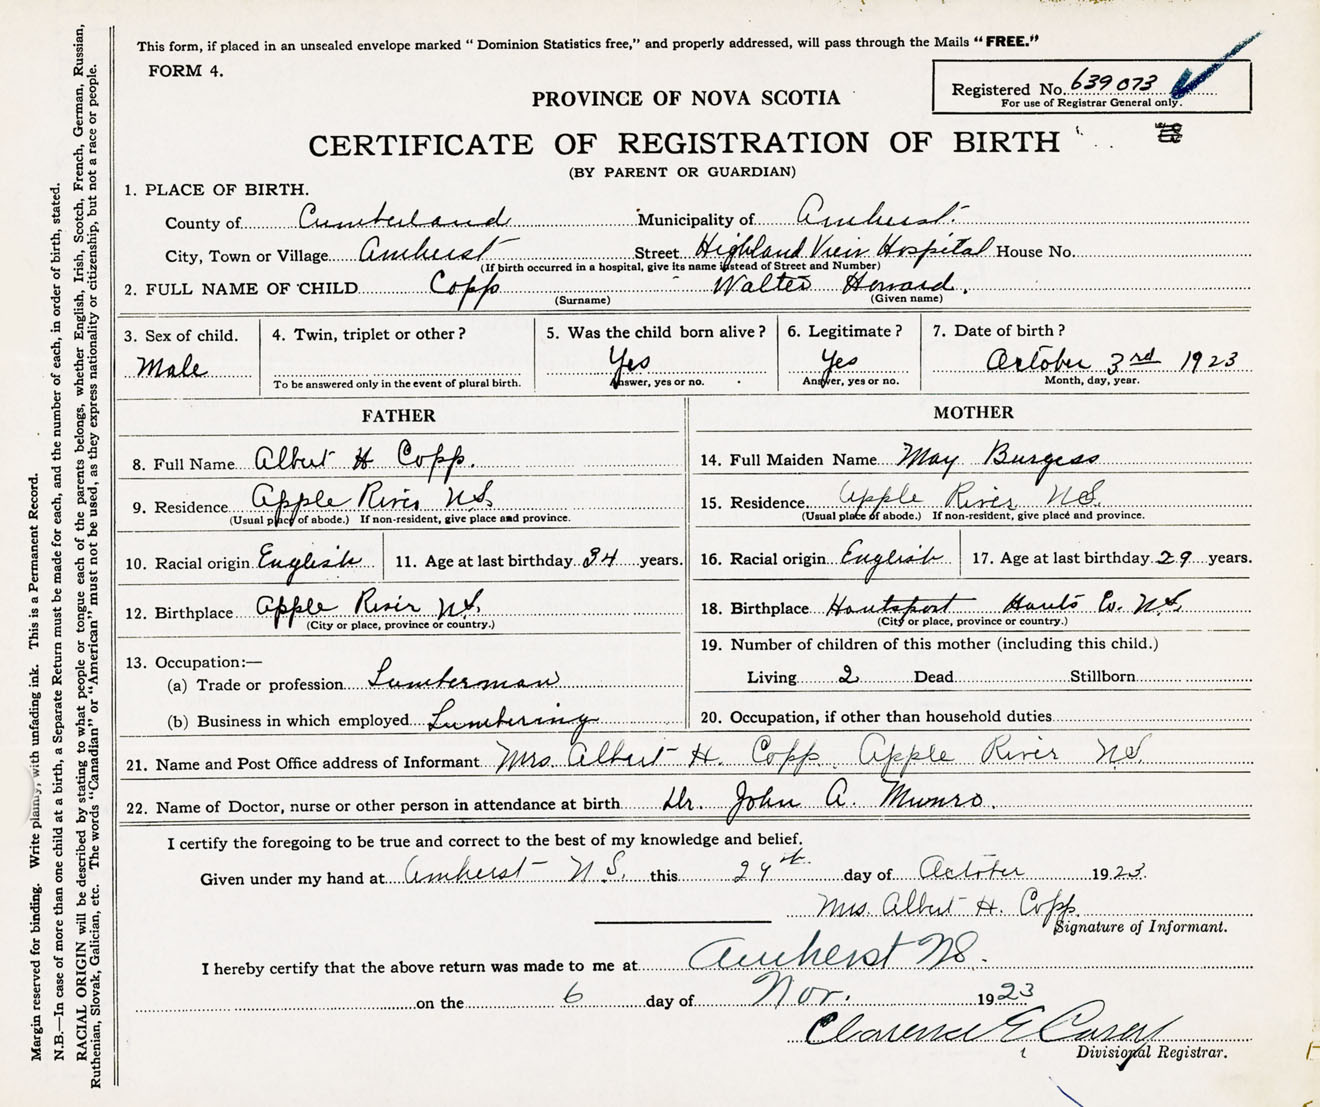 This form, if placed in an unsealed envelope marked “ Dominion Statistics free,” and properly addressed, will pass through the Mails “ FREE.”
FORM 4.
Registered No. 639073
For use of Registrar General only.
PROVINCE OF NOVA SCOTIA
CERTIFICATE OF REGISTRATION OF BIRTH
(BY PARENT OR GUARDIAN)
1. PLACE OF BIRTH.
County of Cumberland Municipality of Amherst
City, Town or Village Amherst Street Highland View Hospital House No.
(If birth occurred in a hospital, give its name instead of Street and Number)
2. FULL NAME OF CHILD Copp Walter Howard.
(Surname) (Given name)
3. Sex of child. 4. Twin, triplet or other? 5. Was the child born alive? 6. Legitimate? 7. Date of birth?
Male Yes Yes October 3rd 1923
To be answered only in the event of plural birth. Answer, yes or no. Answer, yes or no. Month, day, year.
FATHER MOTHER
8. Full Name Albert H Copp. 14. Full Maiden Name May Burgess
9. Residence Apple River N.S. 15. Residence Apple River N.S.
(Usual place of abode.) If non-resident, give place and province. (Usual place of abode.) If non-resident, give place and province.
10. Racial origin English 11. Age at last birthday 34 years. 16. Racial origin English 17. Age at last birthday 29 years.
12. Birthplace Apple River N.S. 18. Birthplace Hantsport Hants Co. N.S.
(City or place, province or country.) (City or place, province or country.)
13. Occupation:— 19. Number of children of this mother (including this child.)
(a) Trade or profession Lumberman Living 2 Dead Stillborn
(b) Business in which employed Lumbering 20. Occupation, if other than household duties
21. Name and Post Office address of Informant Mrs. Albert H. Copp. Apple River N.S.
22. Name of Doctor, nurse or other person in attendance at birth Dr. John A. Munro.
I certify the foregoing to be true and correct to the best of my knowledge and belief.
Given under my hand at Amherst N.S. this 24th day of October 1923.
Mrs. Albert H. Copp.
Signature of Informant.
I hereby certify that the above return was made to me at Amherst NS.
on the 6 day of Nov. 1923
Clarence E Casey
Divisional Registrar.
Margin reserved for binding. Write plainly, with unfading ink. This is a Permanent Record.
N.B.—In case of more than one child at a birth, a Separate Return must be made for each, and the number of each, in order of birth, stated.
RACIAL ORIGIN will be described by stating to what people or tongue each of the parents belongs, whether English, Irish, Scotch, French, German, Russian,
Ruthenian, Slovak, Galician, etc. The words “Canadian” or “American” must not be used, as they express nationality or citizenship, but not a race or people.